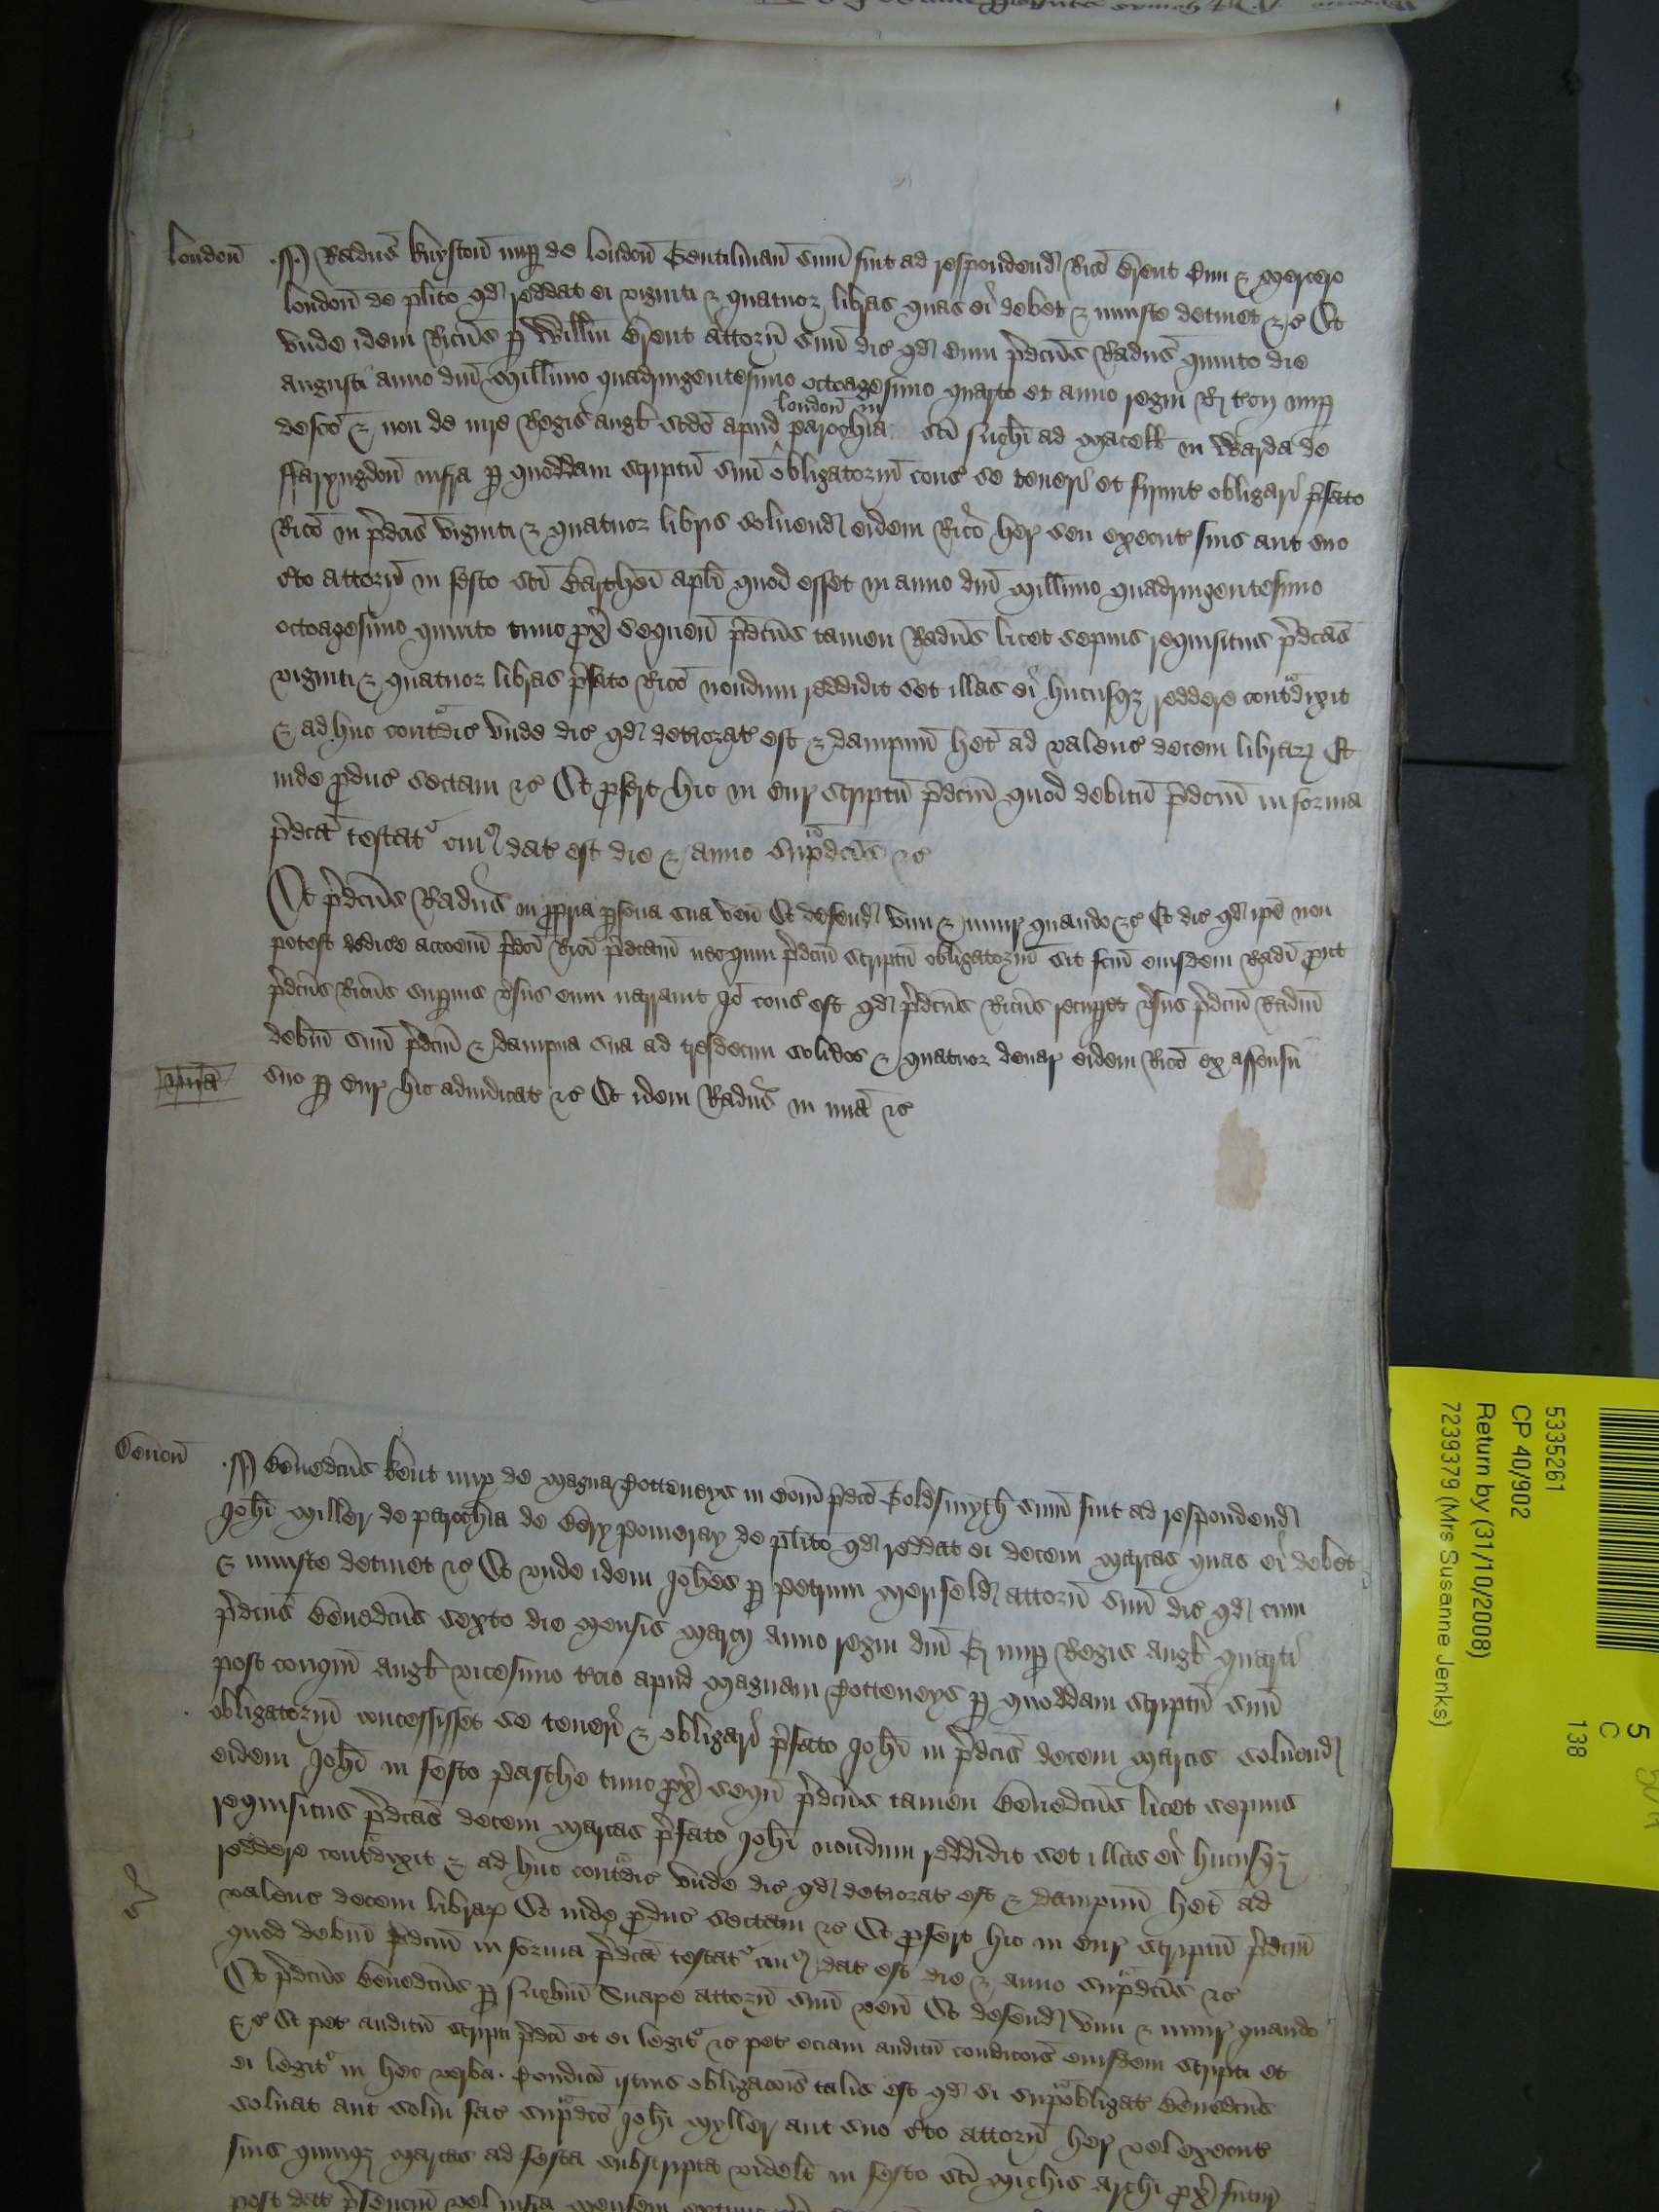 londoñ Radũs knyftoñ nup de londoñ Gentilmañ sum̃ fuit ad respondend Rico Brent Civi & mercero
londoñ de plito qd reddat ei viginti & quatuor libras quas ei debet & iniuste detinet &c Et
unde idem Ricus p Willm Brent attorñ suũ dic qd cum pdcus Radus quinto die
augusti anno dni Millimo quadringentesimo octoagesimo quarto et anno regni R tcij nup
de fco & non de iure Regis angl scdo apud londoñ in parochia sci ad macell in Warda de
ffaryngdoñ infra p quoddam scriptu suu obligatoriu conc se teneri et firmit obligari pfato
Rico in pdcis viginti & quatuor libris solvend eidem Rico her seu execut suis aut suo
cto attorñ in festo sci Barthei apli quod esset in anno dni Millimo quadringentesimo
octoagesimo quinto tunc px sequeñ pdcus tamen Radus licet sepius requisitus pdcas
viginti & quatuor libras pfato Rico nondum reddidit set illas ei hucusq reddere contdixit
& ad huc contdic unde dic qd deteriorat est & dampnu het ad valenc decem librar Et
inde pduc sectam &c Et pfert hic in Cur scriptu pdcm quod debitu pdcm in forma
pdca testat cuius dat est die & anno supdcis &c
Et pdcus Radus in ppria psona sua veñ Et defend vim & iniur quando &c Et dic qd ipe non
potest dedicere accoem pdci Rici pdcam nec quin pdcm scriptu obligatoriu sit fcm eiusdem Radi put
pdcus Ricus superius vsus eum narravit Io cons est qd pdcus Ricus recupet vsus pdcm Radm
debitu suu pdcm & dampna sua ad tresdecim solidos & quatuor denar eidem Rico ex assensu
mia suo p Cur hic adiudicat &c Et idem Radus in mia &c
Devoñ Benedcus kent nup de magna Totteneys in Com pdco Goldsmyth sum̃ fuit ad respondend
Johi Miller de parochia de Bery pomeray de plito qd reddat ei decem marcas quas ei debet
& iniuste detinet &c Et unde idem Johes p Petrum attorñ suu dic qd cum
pdcus Benedcus sexto die mensis marcij anno regni dni E nup Regis angl quarti
post conqm angl vicesimo tcio apud magnam Totteneys p quoddam scriptu suu
obligatoriu concessisset se teneri & obligari pfato Johi in pdcis decem marcis solvend
eidem Johi in festo pasche tunc px sequ pdcus tamen Benedcus licet sepius
requisitus pdcas decem marcas pfato Johi nondum reddidit set illas ei hucusq
reddere contdixit & ad huc contdic unde dic qd deteriorat est & dampnu het ad
valenc decem librar Et inde pduc sectam &c Et pfert hic in Cur scriptu pdcm
quod debitu pdcm in forma pdca testat cuius dat est die & anno supdcis &c
Et pdcus Benedcus p Snape attorñ suu veñ Et defend vim & iniur quando
&c Et pet auditu scripti pdci et ei legit &c pet eciam auditu condicois eiusdem scripti et
ei legit in hec verba. Condicio istius obligacois talis est qd si supobligat Benedcus
solvat aut solvi fac supdco Johi Myller aut suo cto attorñ her vel execut
suis quinq marcas ad festa subscripta videlt in festo sci Michis archi px futur
post dat psenciu vel infra mensem
5335261
CP 40/902
Return by (31/10/2008)
7239379 (Mrs Susanne Jenks)
5
C
138